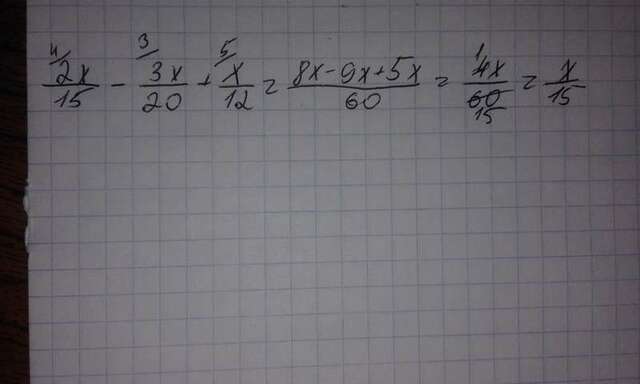 ⁴⁄ 2x/15 - ³⁄ 3x/20 + ⁵⁄ x/12 = 8x-9x+5x/60 = 4x/60 15 = x/15